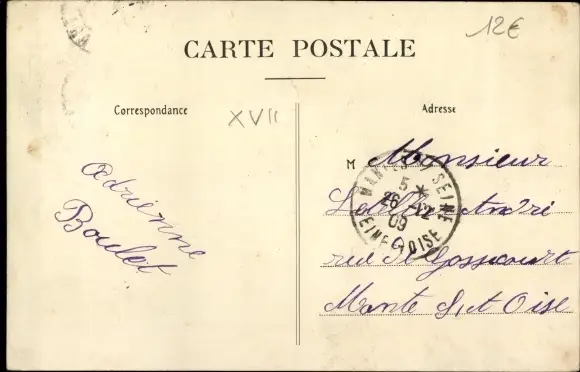 12€
CARTE POSTALE
Correspondance
XVII
Adresse
Adrienne
Boulet
M Monsieur
André
rue de Gassicourt
Mante S, et Oise
MANTES S/ SEINE
5 *
26 -12
09
SEINE & OISE